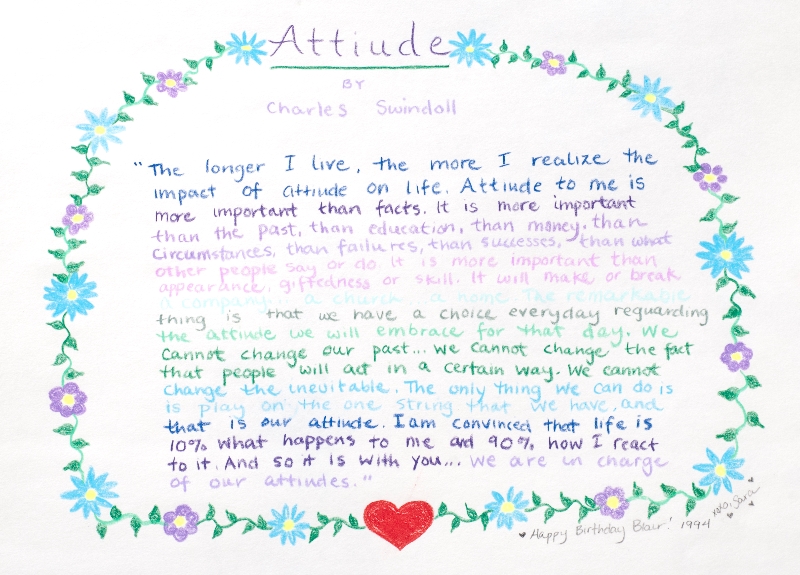 Attiude
BY
Charles Swindoll
"The longer I live, the more I realize the
impact of attiude on life. Attiude to me is
more important than facts. It is more important
than the past, than education, than money, than
circumstances, than failures, than successes, than what
other people say or do. It is more important than
appearance, giftedness or skill. It will make or break
a company... a church... a home. The remarkable
thing is that we have a choice everyday reguarding
the attiude we will embrace for that day. We
cannot change our past... we cannot change the fact
that people will act in a certain way. We cannot
change the inevitable. The only thing we can do is
is play on the one string that we have, and
that is our attiude. I am convinced that life is
10% what happens to me and 90% how I react
to it. And so it is with you... we are in charge
of our attiudes."
♥ Happy Birthday Blair! 1994
xoxo, Sara